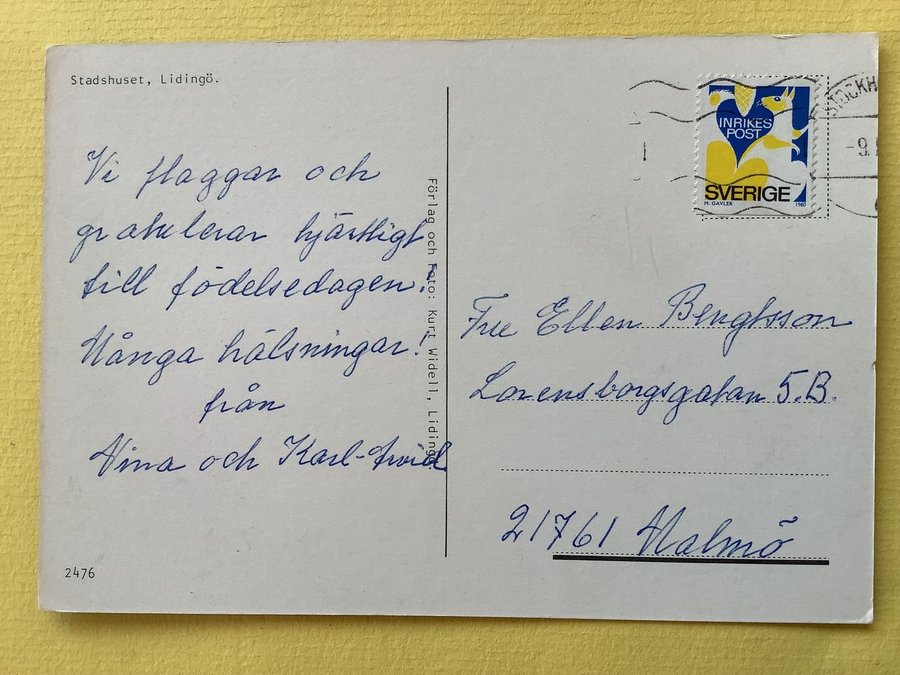 Stadshuset, Lidingö.
Vi flaggar och
gratulerar hjärtligt
till födelsedagen!
Många hälsningar!
från
Nina och Karl-Arvid
2476
Förlag och Foto: Kurt Widell, Lidingö.
INRIKES
POST
SVERIGE
M. GAVLER 1980
STOCKH
-9.
Fru Ellen Bengtsson
Lorensborgsgatan 5.B.
21761 Malmö